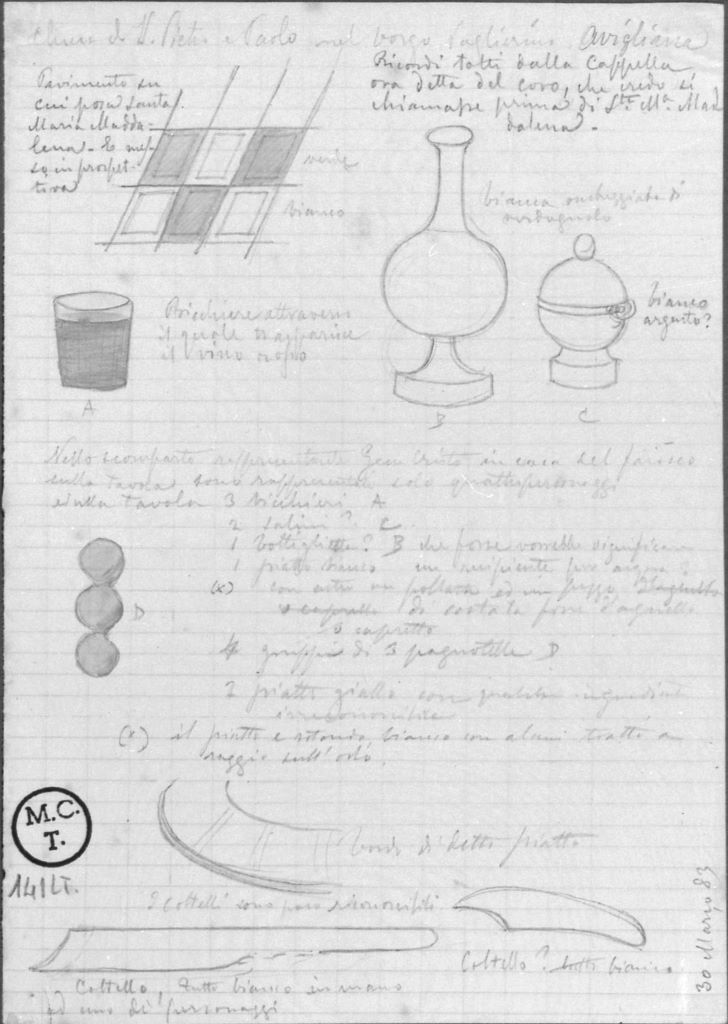 Chiesa di S. Pietro e Paolo nel borgo Paglierino. Avigliana
Ricordi tolti dalla Cappella
ora detta del coro, che credo si
chiamasse prima di Sta. Ma. Mad
dalena.-
Pavimento su
cui posa Santa
Maria Madda=
lena. - E mes-
so in prospet-
tiva
verde
bianco
bianca ombreggiata di
bianco
argento?
Bicchiere attraverso
il quale trapparisce
il vino rosso
A
B
C
Nello scomparto rappresentante Gesù Cristo in casa del fariseo
sulla tavola sono rappresentati solo quattro personaggi
e sulla tavola 3 bicchieri A
2 salini? C
1 bottiglia? B che forse vorrebbe significare
1 piatto bianco un recipiente per acqua?
(x) con entro un pollastro ed un pezzo
o capretto di costata forse d'agnello
o capretto
D
4 gruppi di 3 pagnottelle D
2 piatti giallo con qualche ingrediente
irriconoscibile
(x) il piatto è rotondo bianco con alcuni tratti a
raggio sull'orlo.
M.C.
T.
141LT.
bordo di detto piatto
I coltelli sono poco riconoscibili
Coltello? tutto bianco
Coltello, tutto bianco in mano
ad uno di' personaggi
30 Marzo 83